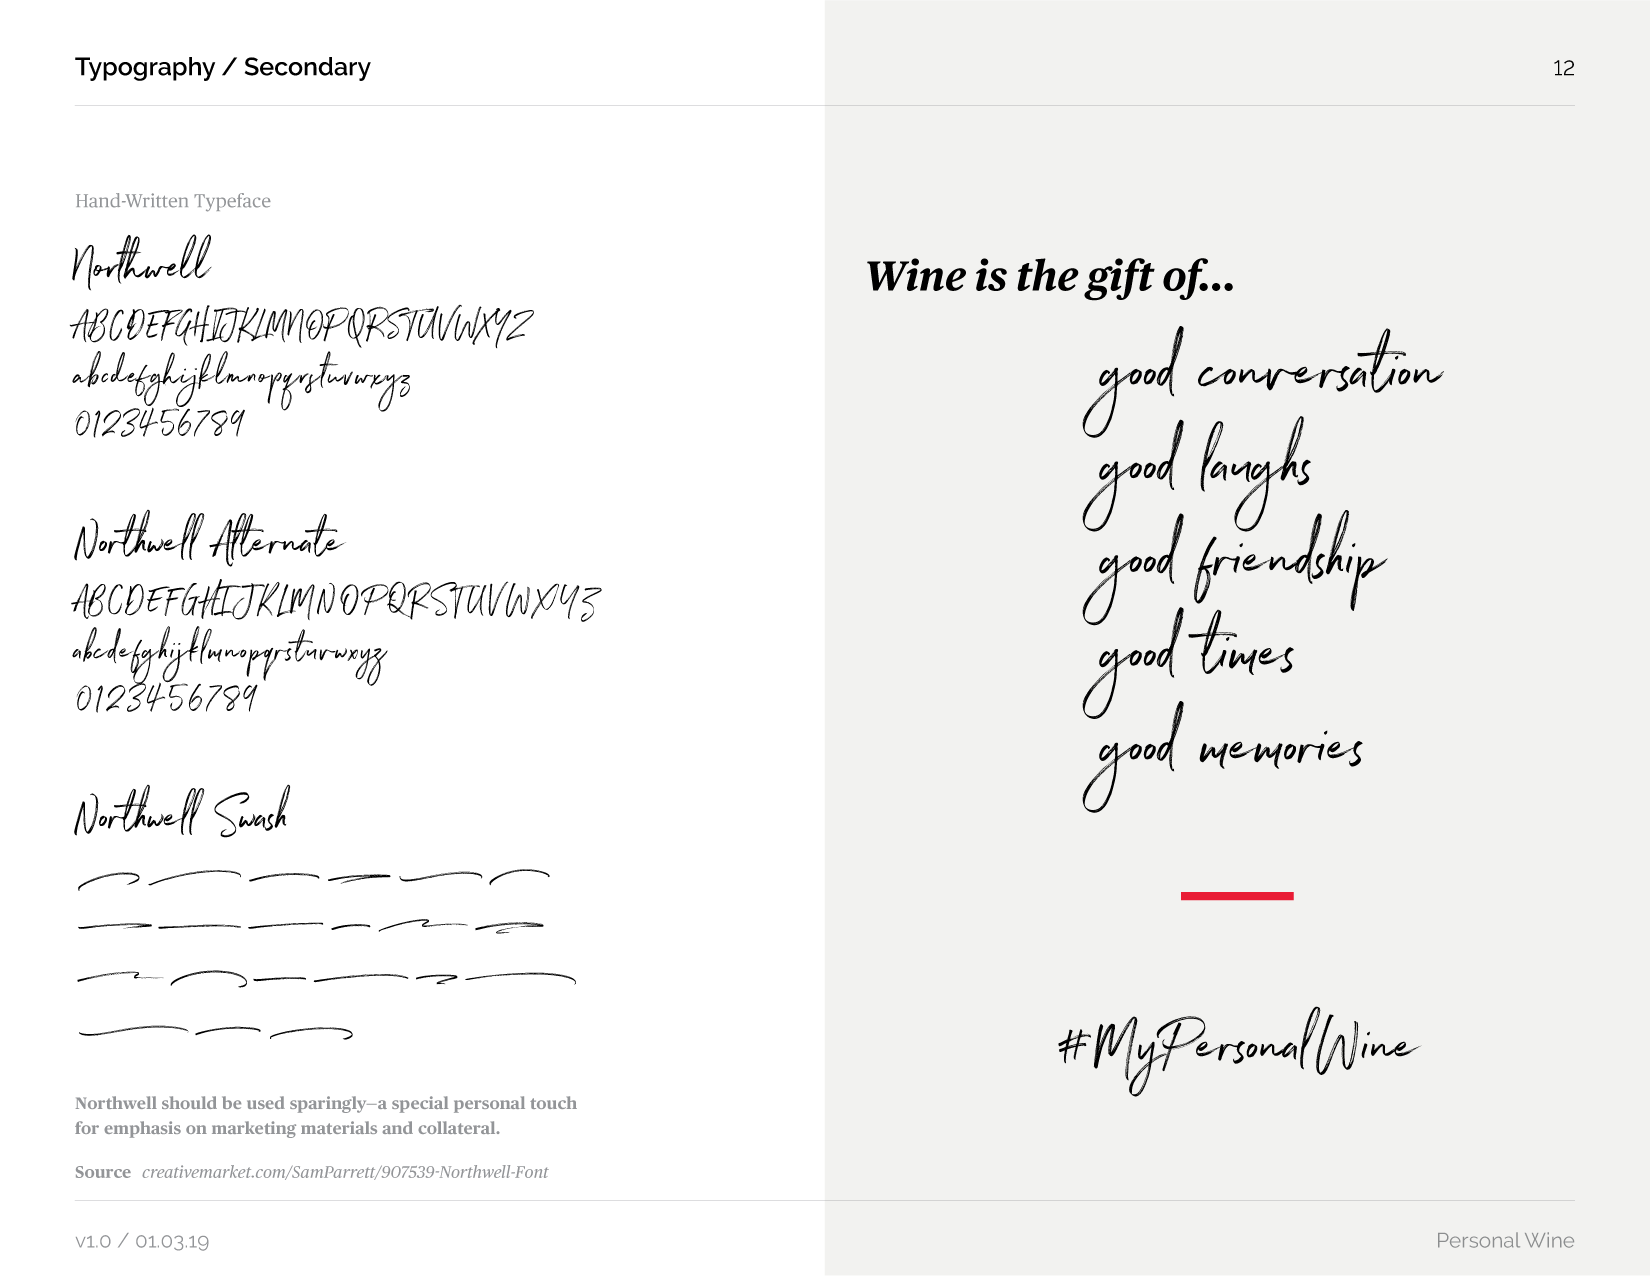 Typography / Secondary
12
Hand-Written Typeface
Northwell
ABCDEFGHIJKLMNOPQRSTUVWXYZ
abcdefghijklmnopqrstuvwxyz
0123456789
Northwell Alternate
ABCDEFGHIJKLMNOPQRSTUVWXYZ
abcdefghijklmnopqrstuvwxyz
0123456789
Northwell Swash
Northwell should be used sparingly—a special personal touch
for emphasis on marketing materials and collateral.
Source creativemarket.com/SamParrett/907539-Northwell-Font
Wine is the gift of...
good conversation
good laughs
good friendship
good times
good memories
#MyPersonalWine
v1.0 / 01.03.19
Personal Wine